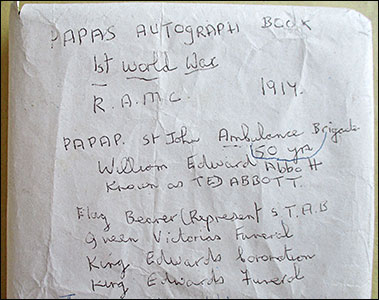 PAPAS AUTOGRAPH BOOK
1st World War
R.A.M.C. 1914.
PAPAP. St John Ambulance Brigade
50 yrs
William Edward Abbott
Known as TED ABBOTT.
Flag Bearer (Represent S.T.A.B
Queen Victorias Funeral
King Edwards Coronation
King Edwards Funeral